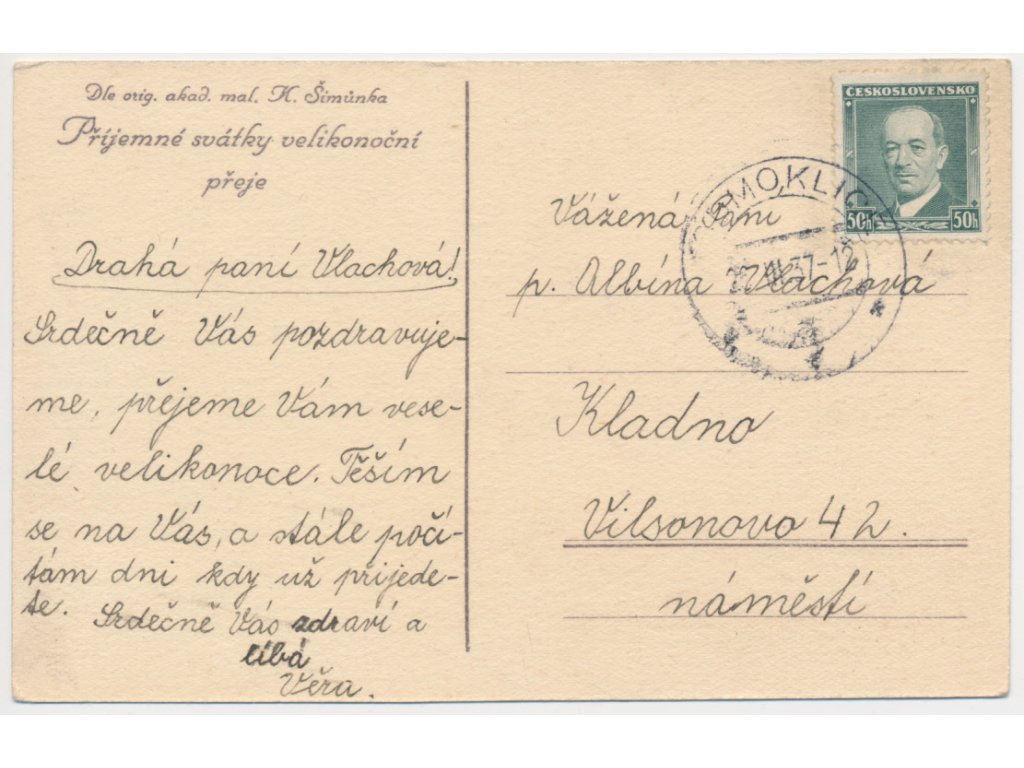 Dle orig. akad. mal. K. Šimůnka
Příjemné svátky velikonoční
přeje
Drahá paní Vlachová!
Srdečně Vás pozdravuje-
me, přejeme Vám vese-
lé velikonoce. Těším
se na Vás, a stále počí-
tám dni kdy už přijede-
te.
Srdečně Vás zdraví a
líbá
Věra.
ČESKOSLOVENSKO
50h 50h
Vážená Paní
p. Albína Vlachová
Kladno
Vilsonovo 42.
náměstí